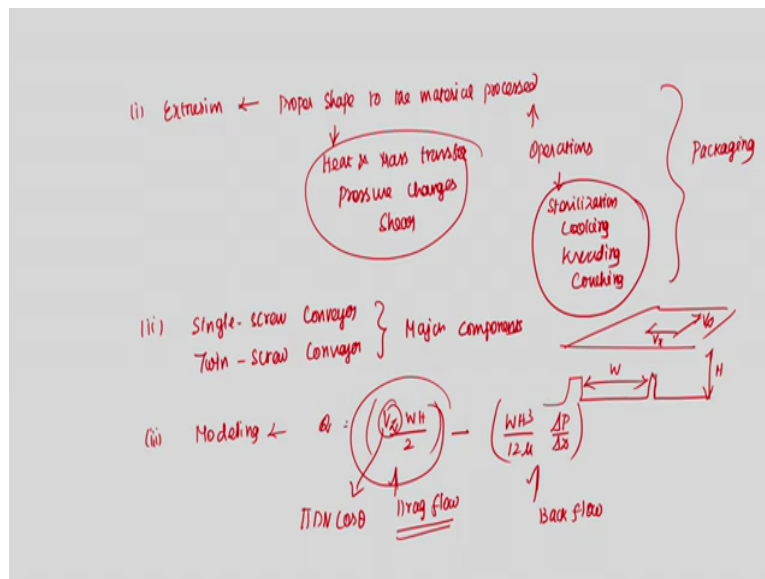 (i) Extrusion ← Proper shape to the material processed
Heat & Mass transfer
Pressure changes
Shear
Operations
Sterilization
Cooking
Kneading
Conching
Packaging
(ii) Single-screw Conveyor
Twin-screw Conveyor
Major components
Vx
W
H
(iii) Modeling ← Q = (Vx WH / 2) - (WH³ / 12μ ΔP / Δx)
ΠDN cosθ
Drag flow
Back flow